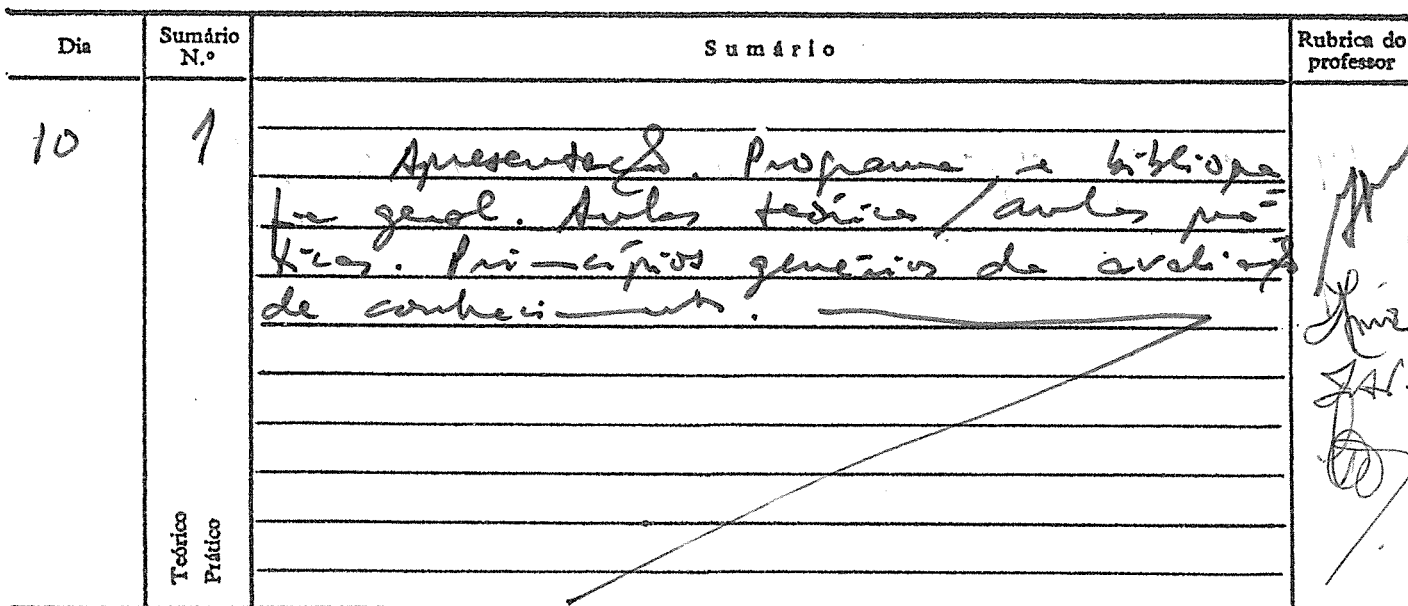 Dia
Sumário
N.º
Sumário
Rubrica do
professor
10
1
Apresentação. Programa e bibliogra
fia geral. Aulas teóricas / aulas prá-
ticas. Princípios genéricos da avaliação
de conhecimentos.
Teórico
Prático